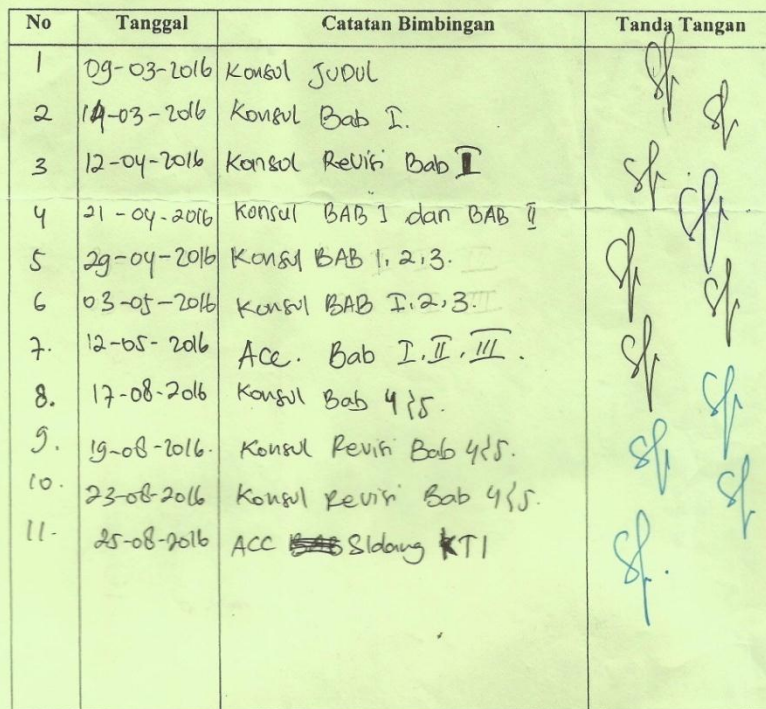 No Tanggal Catatan Bimbingan Tanda Tangan
1 09-03-2016 Konsul JUDUL
2 14-03-2016 Konsul Bab I.
3 12-04-2016 Konsul Revisi Bab I
4 21-04-2016 Konsul BAB I dan BAB II
5 29-04-2016 Konsul BAB 1,2,3.
6 03-05-2016 Konsul BAB I,2,3.
7. 12-05-2016 Acc. Bab I, II, III.
8. 17-08-2016 Konsul Bab 4&5.
9. 19-08-2016. Konsul Revisi Bab 4&5.
10. 23-08-2016 Konsul Revisi Bab 4&5.
11. 25-08-2016 ACC Sidang KTI